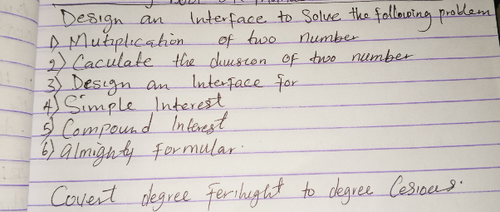 Design an Interface to Solve the following problem
1) Mutiplication of two number
2) Caculate the division of two number
3) Design an Interface for
4) Simple Interest
5) Compound Interest
6) almighty formular.
Covert degree Ferihight to degree Cesioes.